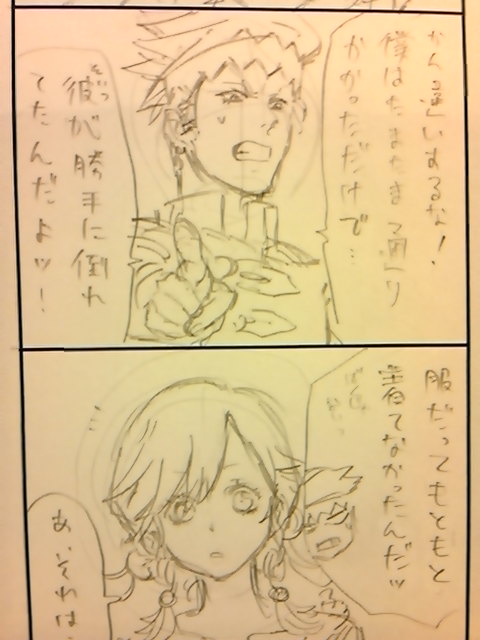 かん違いするな！
僕はたまたま通り
かかっただけで…
彼が勝手に倒れ
てたんだよッ！
服だってもともと
着てなかったんだッ
あ、それは…